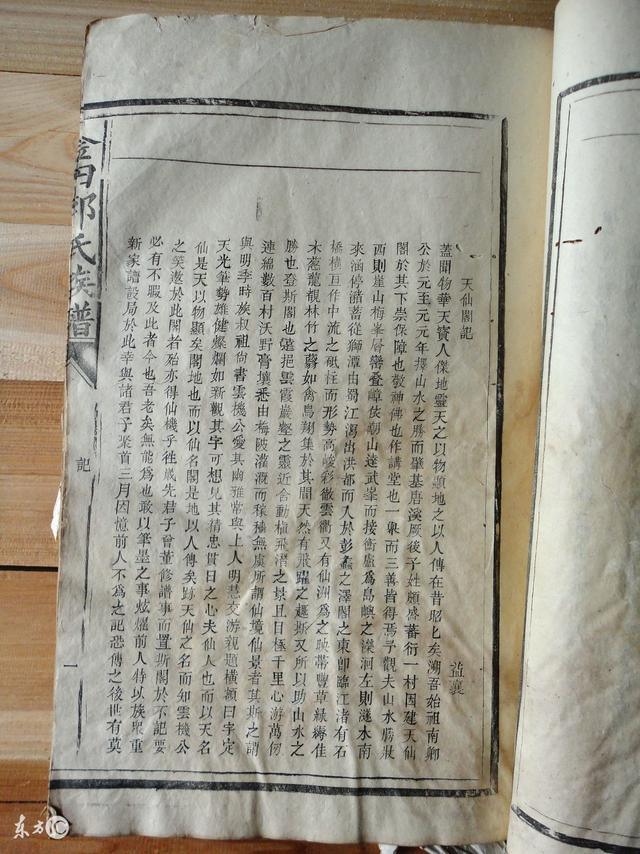 天仙閣記
益襄
蓋聞物華天寶人傑地靈天之以物顯地之以人傳在昔昭昭矣溯吾始祖南卿
公於元至元元年擇山水之勝而肇基唐溪厥後子姓頗盛蕃衍一村因建天仙
閣於其下崇保障也敬神佛也作講堂也一舉而三善皆得焉予觀夫山水勝狀
西則崖山梅峯層巒叠嶂伎朝山達武峯而接衡廬爲島嶼之濚洄左則濉水南
來涵停潴蓄從獅潭由蜀江瀉出洪都而入於彭蠡之澤閣之東卽臨江渚有石
橋橫亘作中流之砥柱而形勢高峻彩徹雲衢又有仙洲爲之映帶豐草綠縟佳
木葱蘢覩林竹之蓊如禽鳥翔集於其間天然有飛躍之趣斯又所以助山水之
勝也登斯閣也遠挹雲霞巖壑之靈近含動植飛潛之景且目極千里心游萬仞
連綿數百村沃野膏壤悉由梅陂灌溉而稼穡無虞所謂仙境仙景者其斯之謂
與明季時族叔祖尚書雲機公愛其幽雅常與上人明慧交游親題橫額曰字定
天光筆勢雄健燦爛如新觀其字可想見其精忠貫日之心夫仙人也而以天名
仙是天以物顯矣閣地也而以仙名閣是地以人傳矣跡天仙之名而知雲機公
之笑遨於此閣者殆亦得仙機乎徃歲先君子曾董修譜事而置斯閣於不記要
必有不暇及此者今也吾老矣無能爲也敢以筆墨之事炫燿前人特以族衆重
新家譜設局於此幸與諸君子聚首三月因憶前人不爲之記恐傳之後世有莫
邱氏族譜
記
一
东方